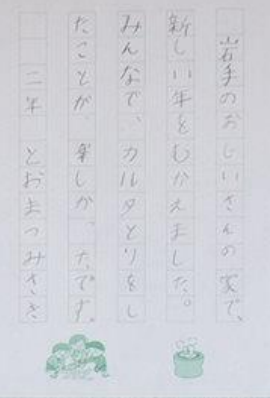 岩手のおじいさんの家で、
新しい年をむかえました。
みんなで、カルタとりをし
たことが、楽しかったです。
二年 とおまつみさき